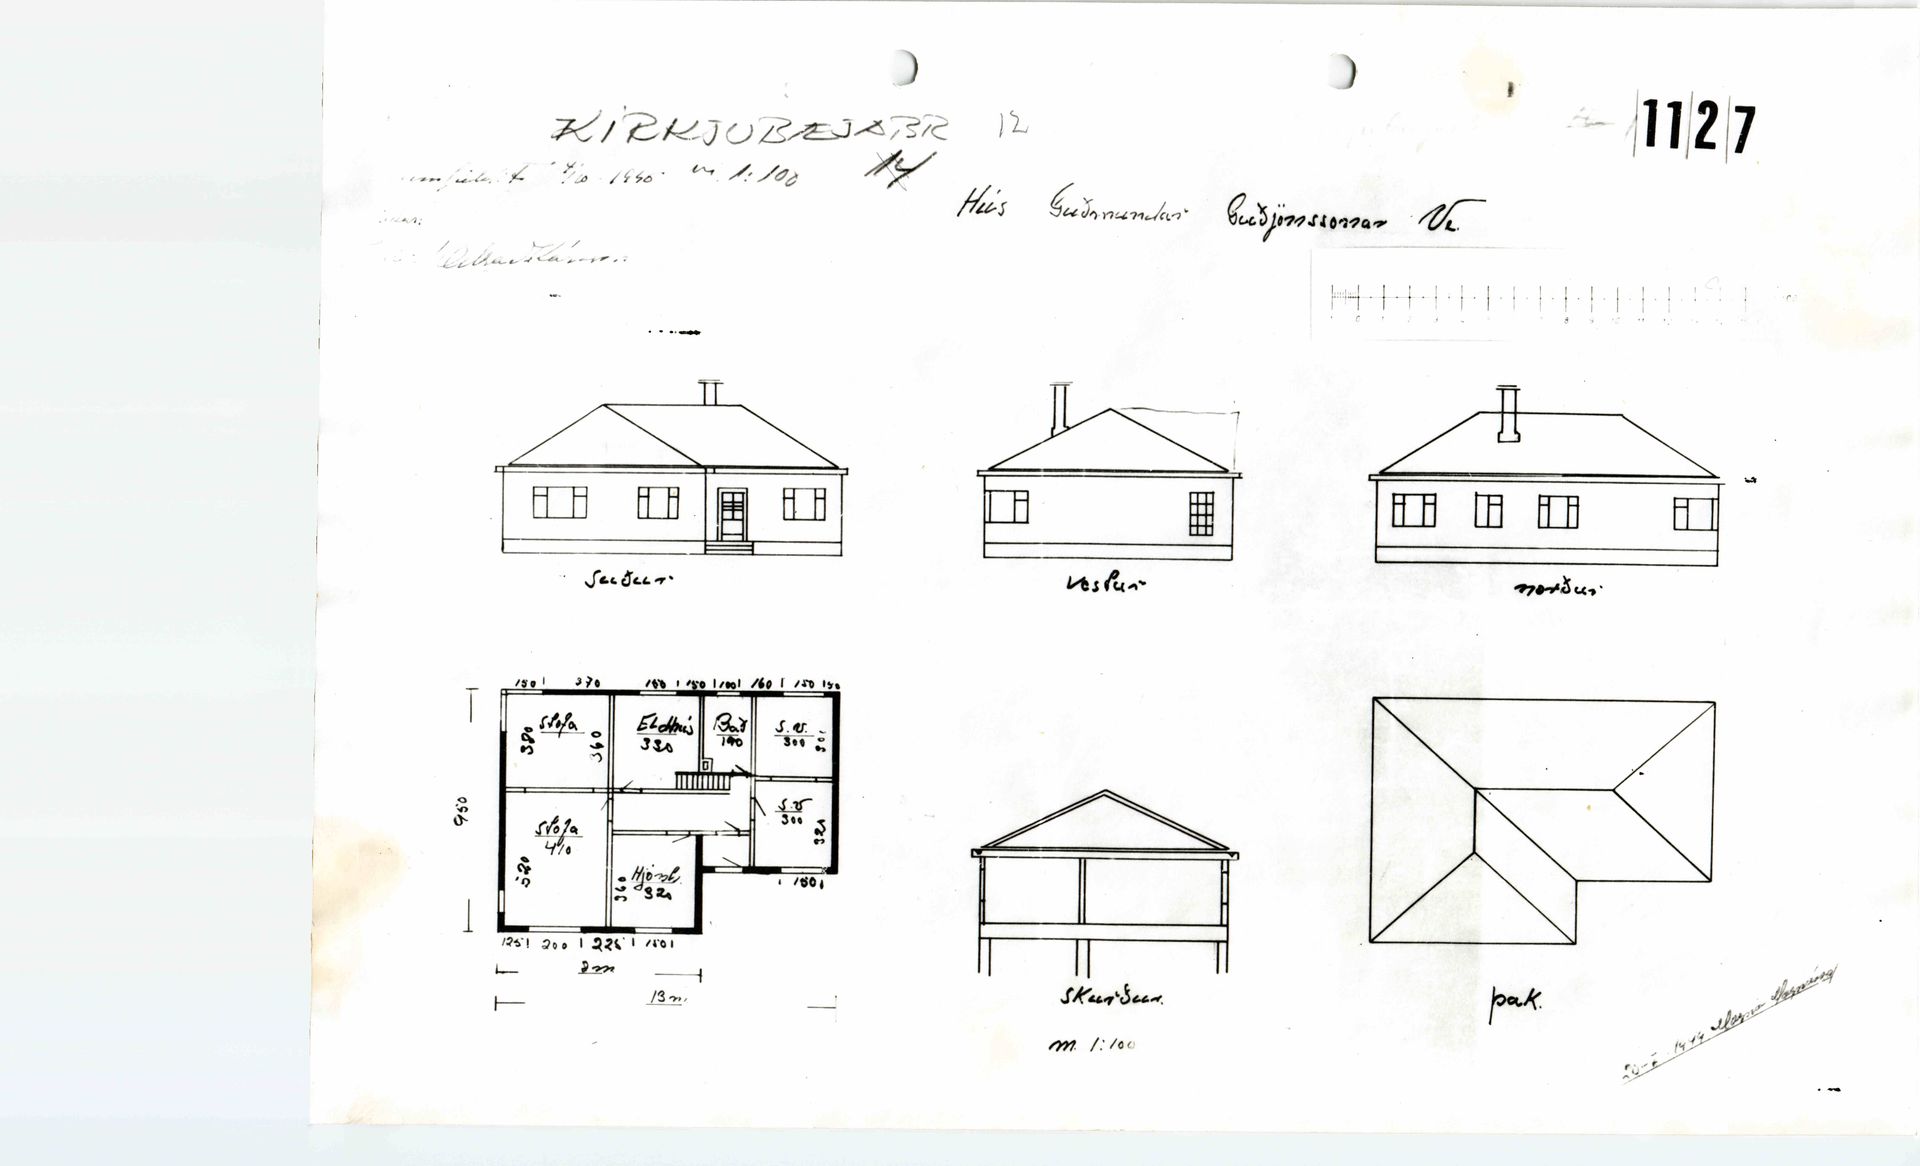 KIRKJUBÆJABR 12
1127
m. 1:100
14
Hús Guðmundar Guðjónssonar Ve.
Suður
Vestur
norður
150 370 150 150 100 160 150 150
Stofa
380
360
Eldhús
330
Bað
190
S.v.
300
301
950
Stofa
410
520
S.v
300
320
Hjónah.
320
360
150
125 200 225 150
8m
13m.
Skurður.
m 1:100
þak.